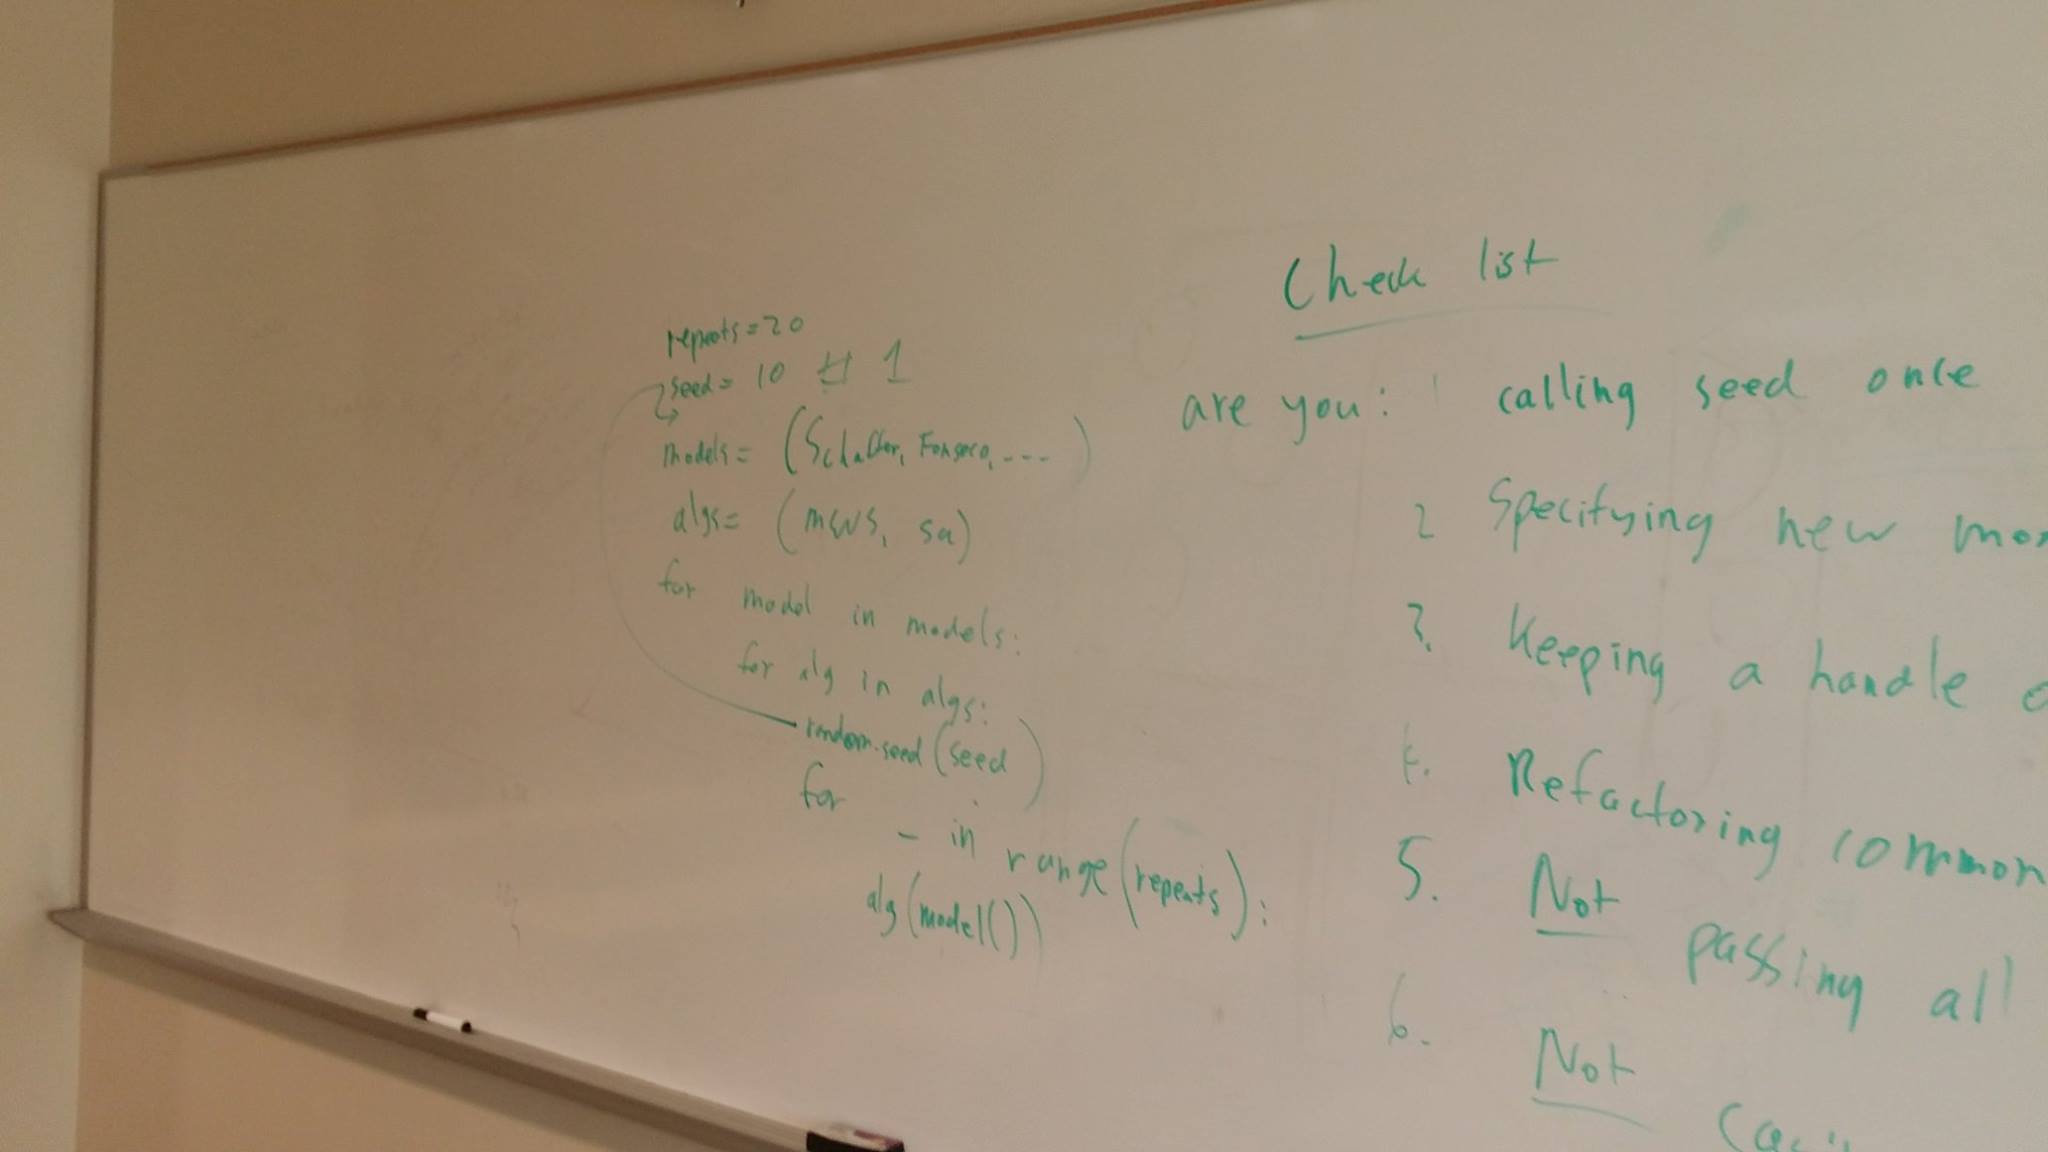 repeats=20
seed= 10 # 1
models= (Schaffer, Fonseca, ---- )
algs= (mws, sa)
for model in models:
for alg in algs:
random.seed(seed)
for _ in range(repeats):
alg(model())
Check list
are you: 1 calling seed once
2 Specifying new
3. Keeping a handle
4. Refactoring common
5. Not passing all
6. Not